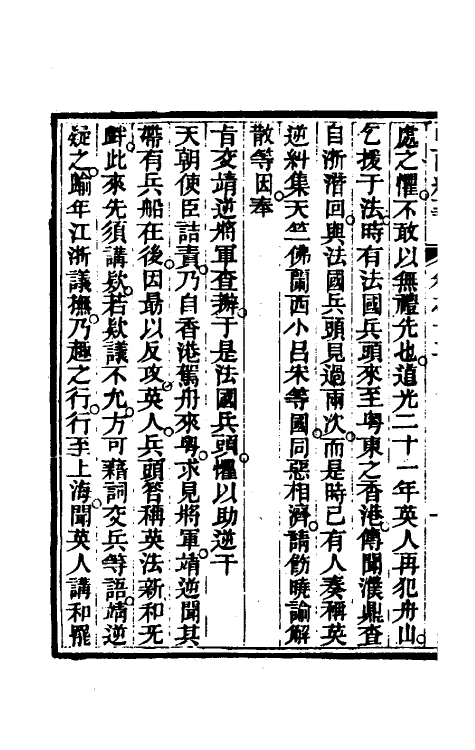 處之懼。不敢以無禮先也。道光二十一年英人再犯舟山。
乞援于法。時有法國兵頭來至粵東之香港。傳聞濮鼎查
自浙潛回。與法國兵頭見過兩次。而是時已有人奏稱英
逆糾集天竺佛闌西小呂宋等國。同惡相濟。請飭曉諭解
散等因。奉
旨交靖逆將軍查辦。于是法國兵頭。懼以助逆干
天朝使臣詰責。乃自香港駕舟來粵。求見將軍。靖逆聞其
帶有兵船在後。因勗以反攻。英人兵頭答稱英法新和无
衅。此來先須講款。若款議不允。方可藉詞交兵等語。靖逆
疑之。踰年江浙議撫。乃趣之行。行至上海。聞英人講和罷